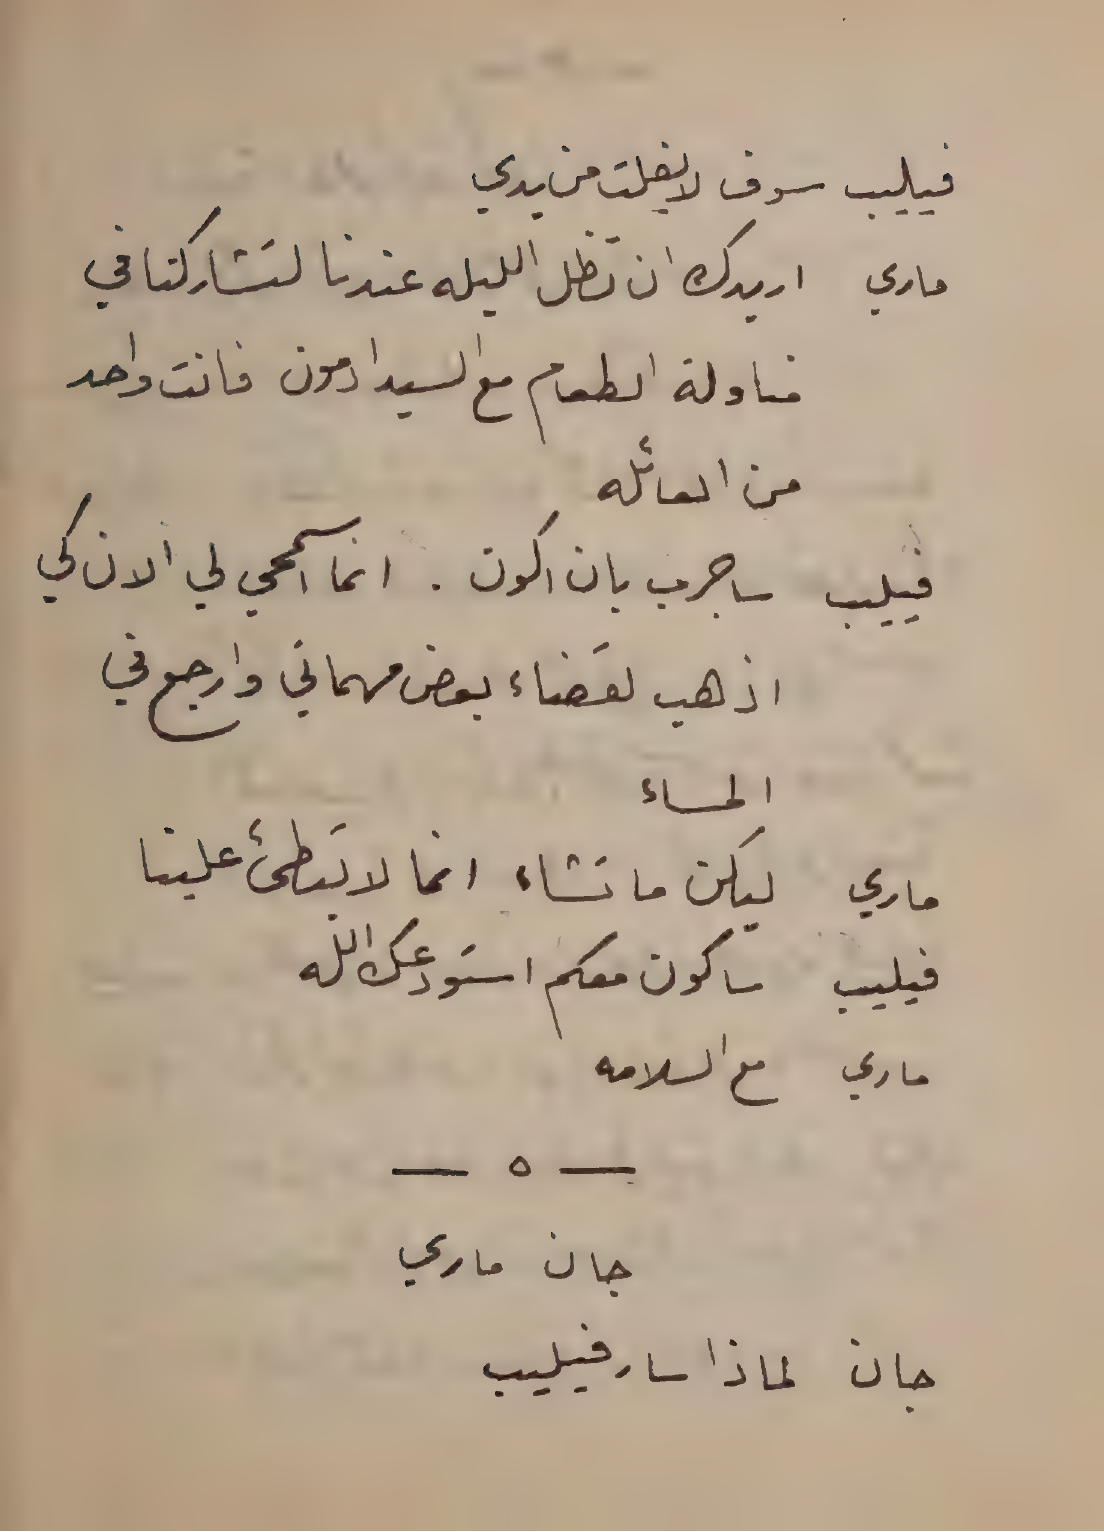 فيليب سوف لا يفلت من يدي
ماري اريدك ان تظل الليله عندنا لتشاركنا في
مناولة الطعام مع السيد ادمون فانت واحد
من العائله
فيليب ساجرب بان اكون . انما اسمحي لي الان كي
اذهب لقضاء بعض مهماتي وارجع في
المساء
ماري ليكن ما تشاء انما لا تبطئ علينا
فيليب ساكون معكم استودعك الله
ماري مع السلامه
— ٥ —
جان ماري
جان لماذا سار فيليب